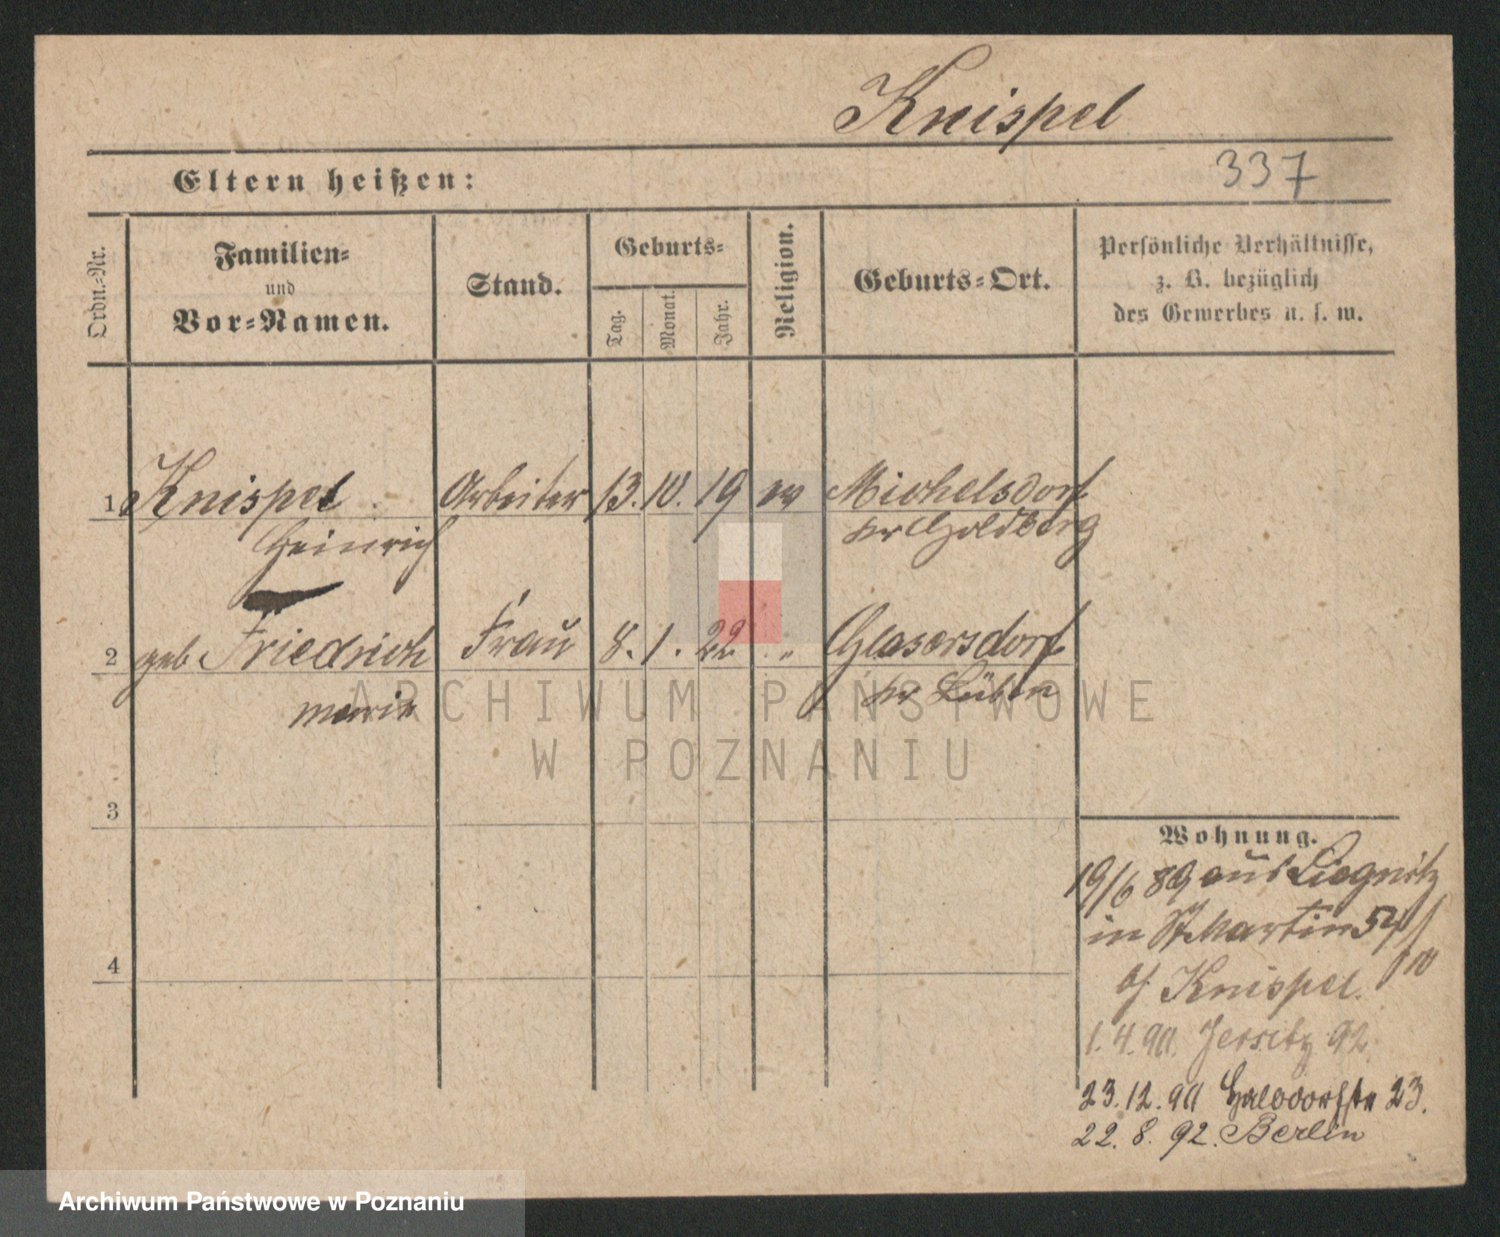 Knispel
Eltern heißen:
337
Ordn.-Nr.
Familien-
und
Vor-Namen.
Stand.
Geburts-
Tag.
Monat.
Jahr.
Religion.
Geburts-Ort.
Persönliche Verhältnisse,
z. B. bezüglich
des Gewerbes u. s. w.
1 Knispel Arbeiter 13. 10. 19 ev Michelsdorf
Heinrich Kr Goldberg
2 geb Friedrich Frau 8. 1. 22 " Glasersdorf
marie Kr Lüben
ARCHIWUM PAŃSTWOWE
W POZNANIU
3
4
Wohnung.
19/6 89 aus Liegnitz
in St Martin 54
bf Knispel.
1. 4. 90. Jersitz 92
23. 12. 90 Halbdorfstr 23.
22. 8. 92. Berlin
Archiwum Państwowe w Poznaniu